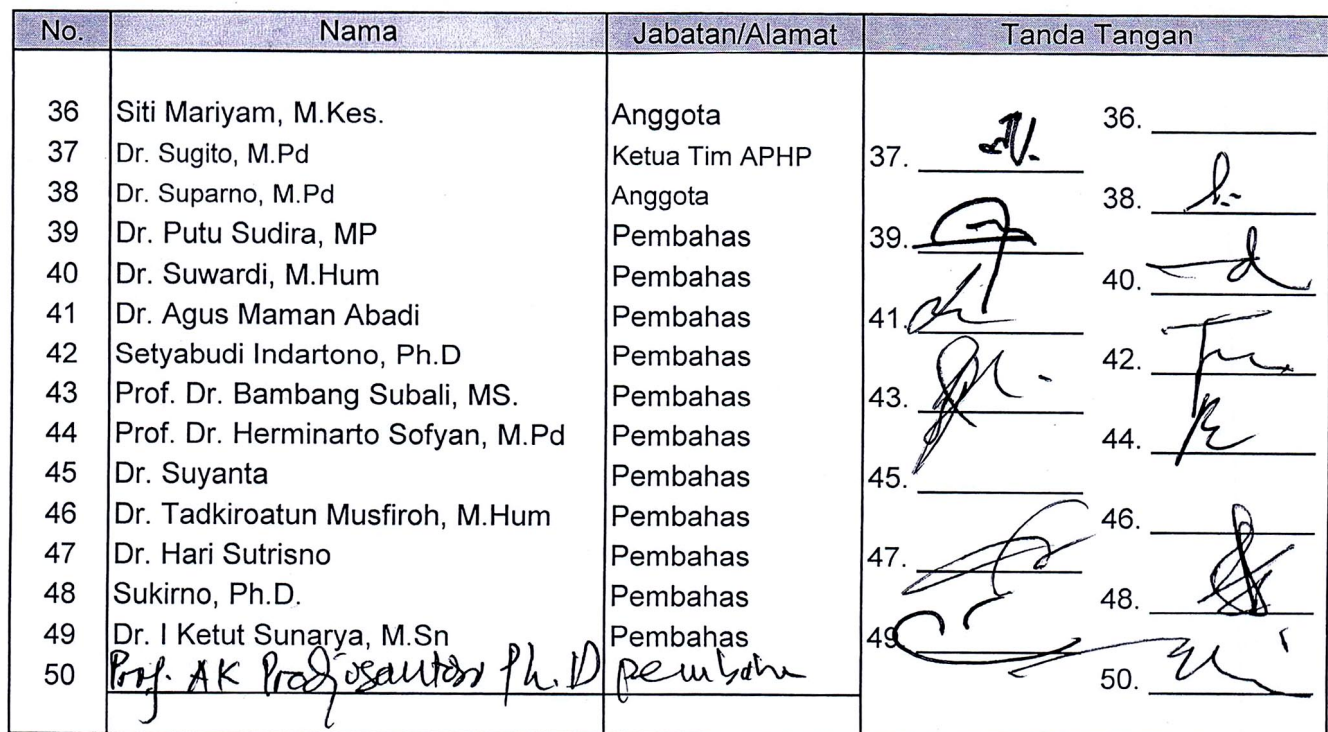 No. Nama Jabatan/Alamat Tanda Tangan
36 Siti Mariyam, M.Kes. Anggota 36.
37 Dr. Sugito, M.Pd Ketua Tim APHP 37.
38 Dr. Suparno, M.Pd Anggota 38.
39 Dr. Putu Sudira, MP Pembahas 39.
40 Dr. Suwardi, M.Hum Pembahas 40.
41 Dr. Agus Maman Abadi Pembahas 41.
42 Setyabudi Indartono, Ph.D Pembahas 42.
43 Prof. Dr. Bambang Subali, MS. Pembahas 43.
44 Prof. Dr. Herminarto Sofyan, M.Pd Pembahas 44.
45 Dr. Suyanta Pembahas 45.
46 Dr. Tadkiroatun Musfiroh, M.Hum Pembahas 46.
47 Dr. Hari Sutrisno Pembahas 47.
48 Sukirno, Ph.D. Pembahas 48.
49 Dr. I Ketut Sunarya, M.Sn Pembahas 49
50 Prof. AK Prodjosantoso Ph.D pembahas 50.